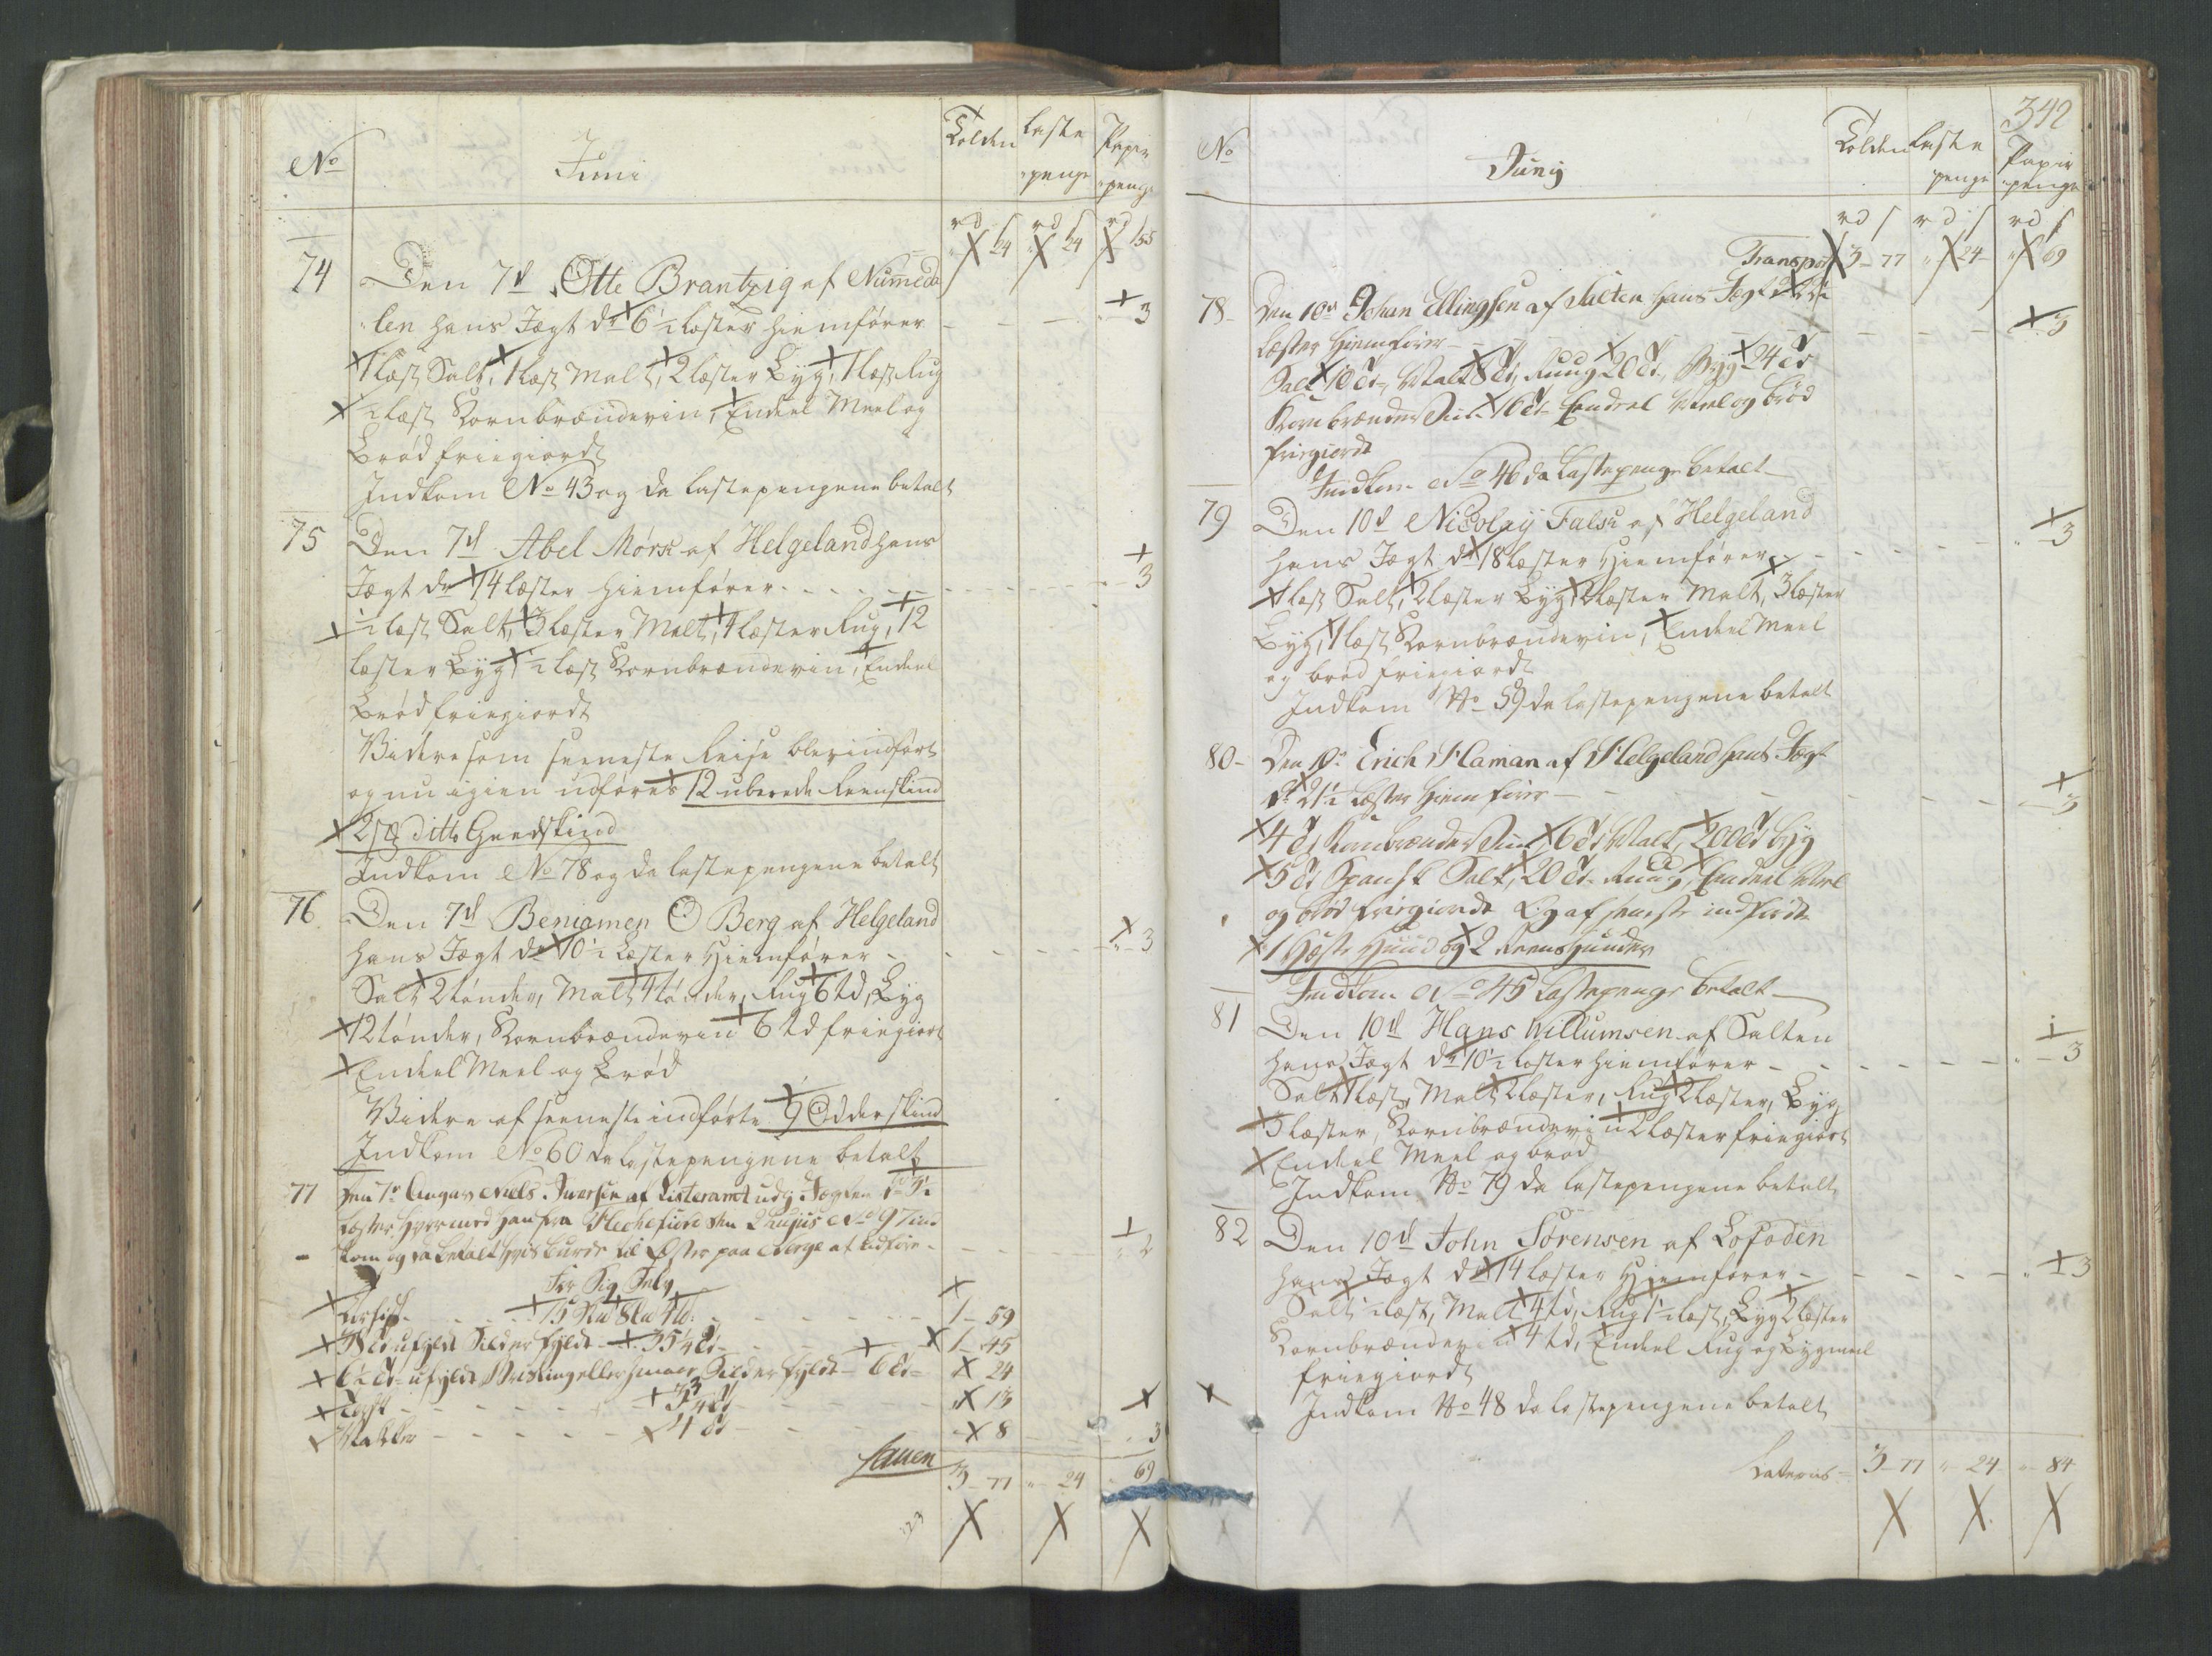 No
Juni
Tolden
Laste
penge
Papir
penge
rd
24
rd
24
rd
55
74
Den 7d Otte Brantzig af Numeda
len hans Jægt dr 6 1/2 læster hiemfører
3
1 læst Salt, 1 læst Malt, 2 læster Byg, 1 læst Rug
1/2 læst Kornbrændeviin, Endeel Meel og
Brød friegiordt
Indkom No 43 og da lastepengene betalt
75
Den 7d Abel Mørch af Helgeland hans
Jægt dr 14 læster hiemfører
3
1/2 læst Salt, 3 læster Malt, 4 læster Rug, 12
læster Byg, 1/2 læst Kornbrændeviin, Endeel
Brød friegiordt
Videre som seeneste Reise blev indført
og nu igien udføres 12 uberede Reenskind
2 ditto Geedskind
Indkom No 78 og da lastepengene betalt
76
Den 7d Beniamen O Berg af Helgeland
hans Jægt dr 10 1/2 Læster Hiemfører
3
Salt 2 tønder, Malt 4 tønder, Rug 6 td, Byg
12 tønder, Kornbrændeviin 6 td friegiort
Endeel Meel og Brød
Videre af seeneste indførte 9 Odderskind
Indkom No 60 da lastepengene betalt
77
Den 7de Niels Iversen af Listeramt
Læster hvormed han fra Flechefiord den 2 hujus No 97 ind
kom og da betalt
2
For Sig Selv
1 - 59
35 1/4 td
1 - 45
6 td
24
3/4 td
13
1 td
8
3
Lauen
3 - 77
24
69
342
No
Junij
Tolden
Laste
penge
Papir
penge
rd s
rd s
rd s
Transport
3 - 77
24
69
78
Den 10de Johan Ellingsen af Salten hans Jægt
læster hiemfører
3
Salt 10 td, Malt 8 td, Ruug 20 td, Byg 24 td
Kornbrændeviin 16 td Eendeel Meel og brød
friegiordt
Indkom No 46 da Lastepenge betalt
79
Den 10d Nicolay Falch af Helgeland
3
hans Jægt dr 18 læster Hiemfører
1 læst Salt, 2 læster Byg, 2 læster Malt, 3 læster
Byg, 1 læst Kornbrændeviin, Endeel Meel
og brød friegiordt
Indkom No 59 da lastepengene betalt
80
Den 10de Erich Haman af Helgeland hans Jægt
dr 21 1/2 læster hiemfører
3
4 td Kornbrændeviin, 6 td Malt, 200 td byg
5 td Spansk Salt, 20 td Ruug, Eendeel Meel
og brød friegiordt Og af seeneste indførte
1 Hæste Huud og 2 Reenshuuder
Indkom No 45 Lastepenge betalt
81
Den 10d Hans Willumsen af Salten
hans Jægt dr 10 1/2 læster hiemfører
3
Salt 1 læst, Malt 2 læster, Rug 2 læster, Byg
3 læster, Kornbrændeviin 2 læster friegiort
Endeel Meel og brød
Indkom No 79 da lastepengene betalt
82
Den 10d John Sørensen af Lofoden
hans Jægt dr 14 læster Hiemfører
3
Salt 1/2 læst, Malt 4 td, Rug 1 1/2 læst, Byg 2 læster
Kornbrændeviin 4 td, Endeel Rug og Bygmeel
friegiordt
Indkom No 48 da lastepengene betalt
Lateris
3 - 77
24
84